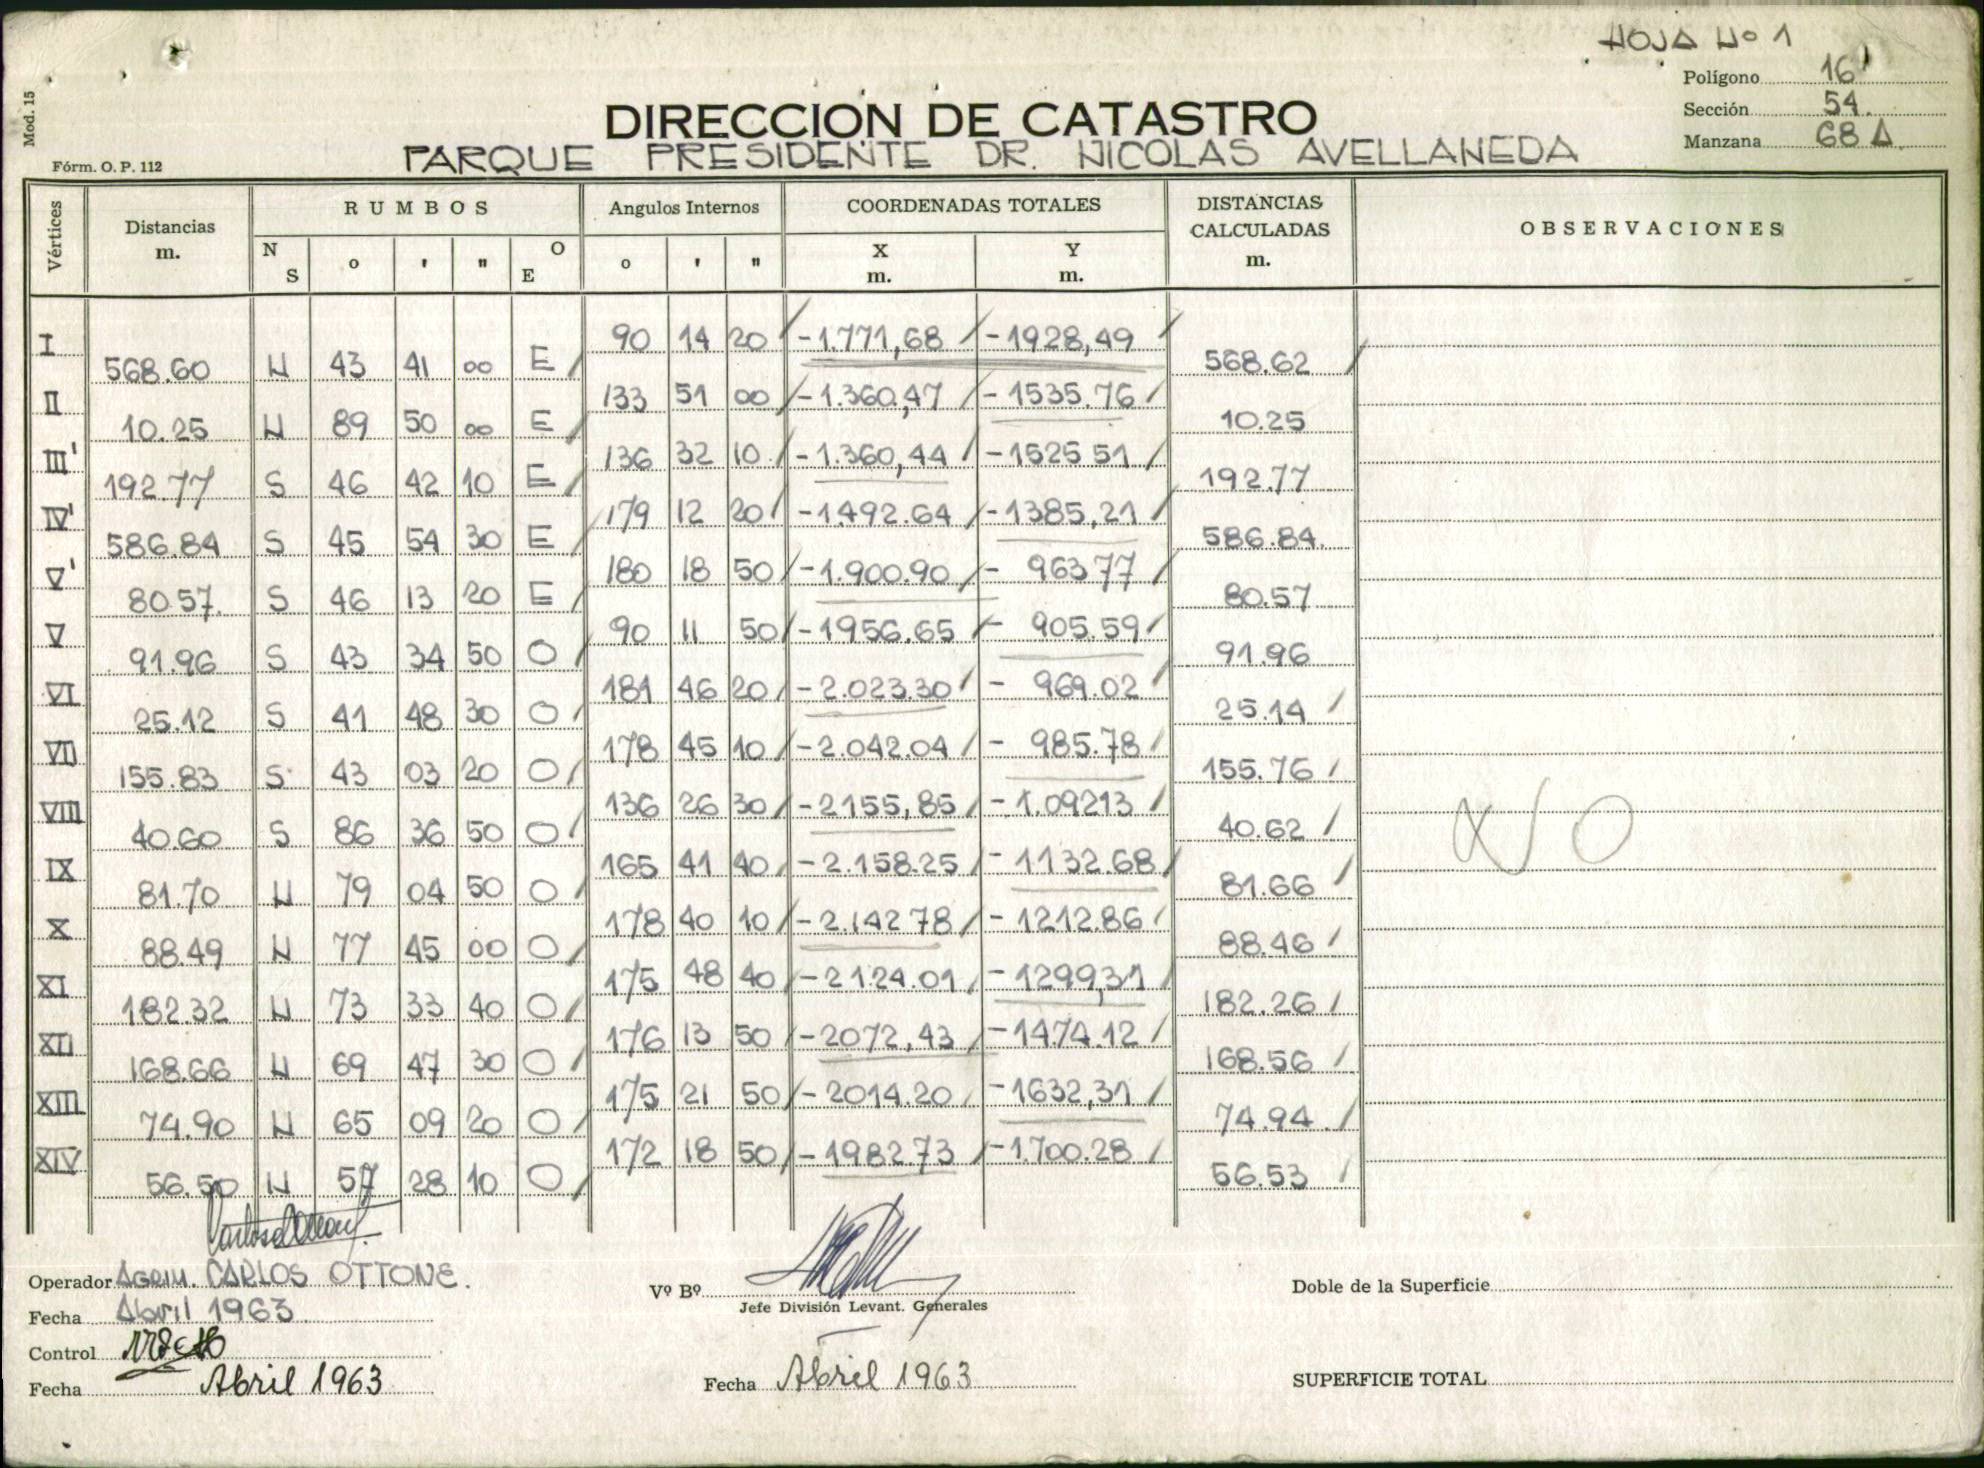 HOJA Nº 1
Mod. 15
Fórm. O. P. 112
Polígono 16
Sección 54
Manzana 68 A
DIRECCION DE CATASTRO
PARQUE PRESIDENTE DR. NICOLAS AVELLANEDA
Vértices Distancias m. RUMBOS N S o ' " O E Angulos Internos o ' " COORDENADAS TOTALES X m. Y m. DISTANCIAS CALCULADAS m. OBSERVACIONES
I 90 14 20 -1.771,68 -1928,49
568.60 N 43 41 00 E 568.62
II 133 51 00 -1.360,47 -1535.76
10.25 N 89 50 00 E 10.25
III' 136 32 10 -1.360,44 -1525 51
192.77 S 46 42 10 E 192.77
IV' 179 12 20 -1492.64 -1385,21
586.84 S 45 54 30 E 586.84
V' 180 18 50 -1.900.90 - 963 77
80.57 S 46 13 20 E 80.57
V 90 11 50 -1956.65 - 905.59
91.96 S 43 34 50 O 91.96
VI 181 46 20 -2.023.30 - 969.02
25.12 S 41 48 30 O 25.14
VII 178 45 10 -2.042.04 - 985.78
155.83 S 43 03 20 O 155.76
VIII 136 26 30 -2155,85 -1.09213
40.60 S 86 36 50 O 40.62
IX 165 41 40 -2.158.25 -1132.68
81.70 N 79 04 50 O 81.66
X 178 40 10 -2.142 78 -1212.86
88.49 N 77 45 00 O 88.46
XI 175 48 40 -2124.01 -1299,31
182.32 N 73 33 40 O 182.26
XII 176 13 50 -2072,43 -1474.12
168.66 N 69 47 30 O 168.56
XIII 175 21 50 -2014.20 -1632,31
74.90 N 65 09 20 O 74.94
XIV 172 18 50 -1982.73 -1.700.28
56.50 N 57 28 10 O 56.53
Operador AGRIM. CARLOS OTTONE.
Fecha Abril 1963
Control
Fecha Abril 1963
Vº Bº
Jefe División Levant. Generales
Fecha Abril 1963
Doble de la Superficie
SUPERFICIE TOTAL